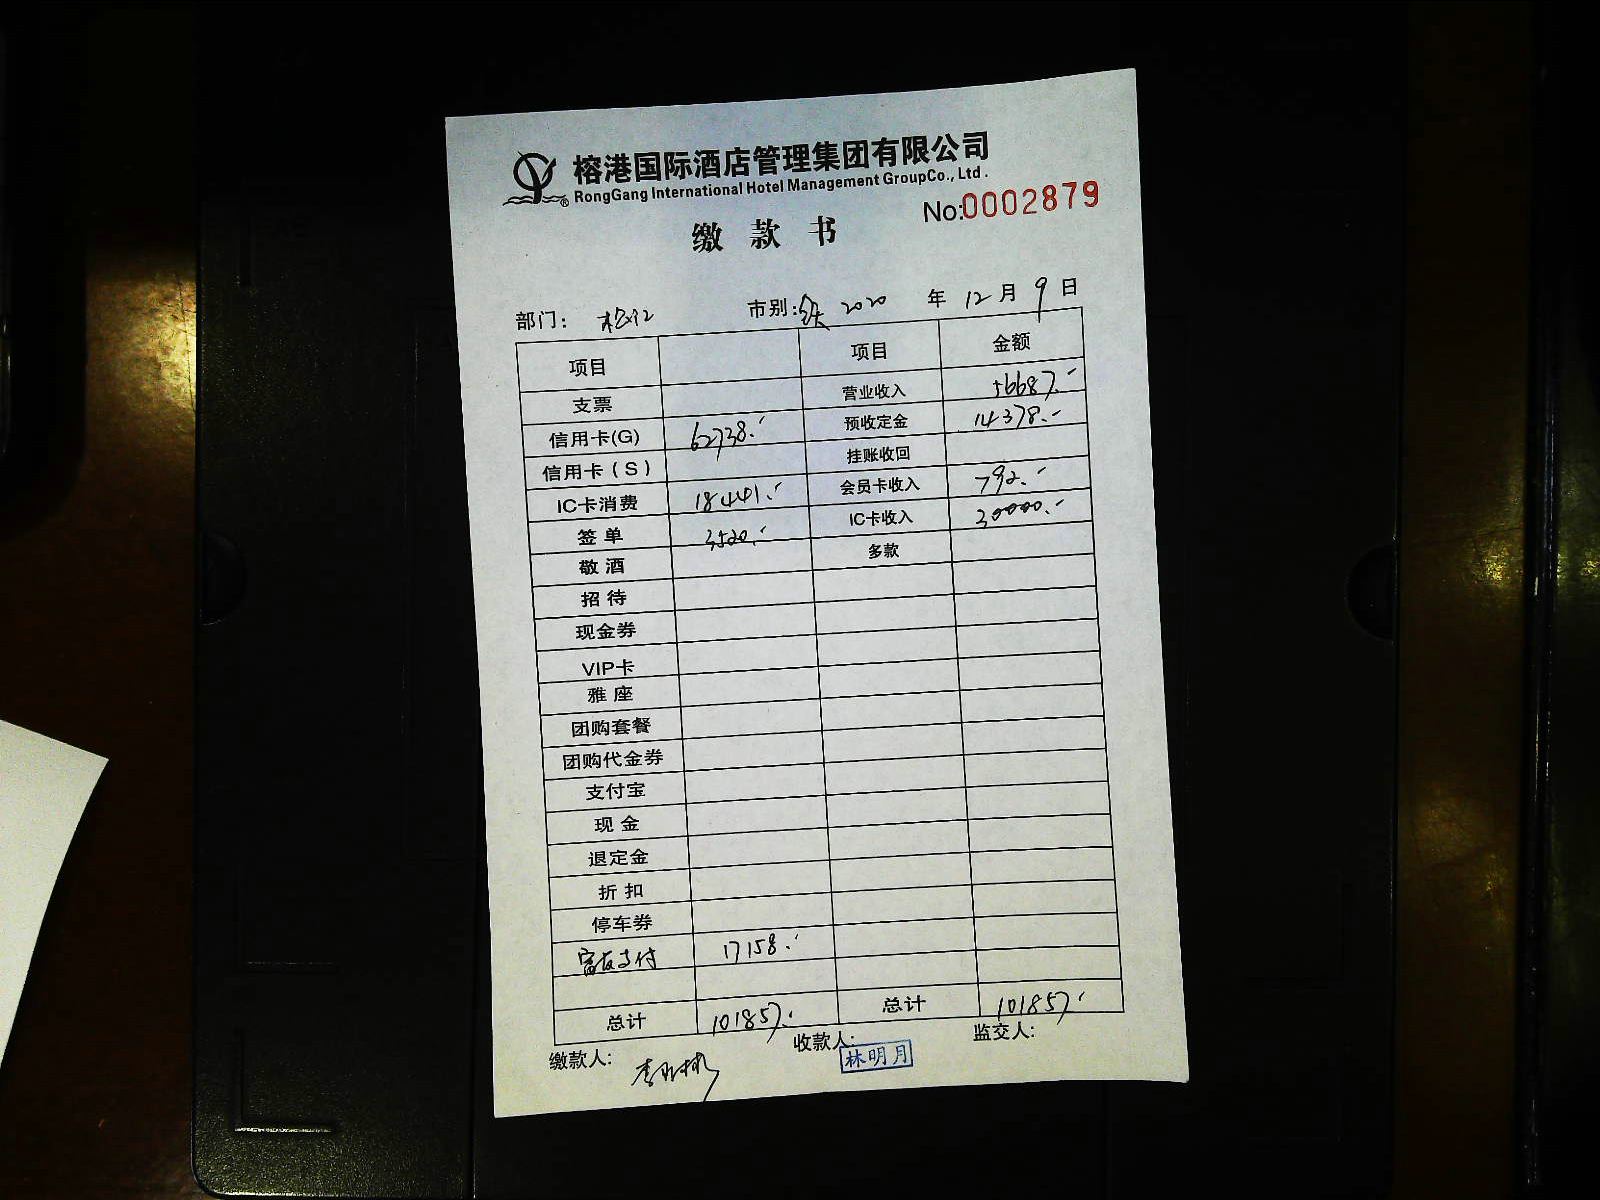 榕港国际酒店管理集团有限公司
RongGang International Hotel Management GroupCo., Ltd.
No:0002879
缴款书
部门: 市别: 2020 年 12 月 9 日
项目 项目 金额
支票 营业收入 56687.-
信用卡(G) 62738.- 预收定金 14378.-
信用卡(S) 挂账收回
IC卡消费 18441.- 会员卡收入 792.-
签单 3520.- IC卡收入 30000.-
敬酒 多款
招待
现金券
VIP卡
雅座
团购套餐
团购代金券
支付宝
现金
退定金
折扣
停车券
富友支付 17158.-
总计 101857.- 总计 101857.-
缴款人: 收款人: 林明月 监交人: